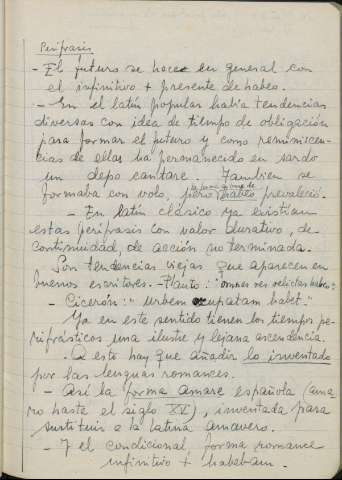 Perífrasis
- El futuro se hace en general con
el infinitivo + presente de habeo.
- En el latín popular había tendencias
diversas con idea de tiempo de obligación
para formar el futuro y como reminiscen-
cias de ellas ha permanecido en sardo
un depo cantare. Tambien se
formaba con volo, pero la forma en habeo prevaleció.
- En latín clásico ya existían
estas perífrasis con valor durativo, de
continuidad, de acción no terminada.
Son tendencias viejas que aparecen en
buenos escritores. - Plauto: "omnes res relictas habeo"
- Cicerón: "urbem occupatam habet."
Ya en este sentido tienen los tiempos pe-
rifrásticos una ilustre y lejana ascendencia.
- A esto hay que añadir lo inventado
por las lenguas romances.
- Así la forma amare española (ama
ro hasta el siglo XV), inventada para
sustituir a la latina amavero.
- Y el condicional, forma romance
infinitivo + habebam.